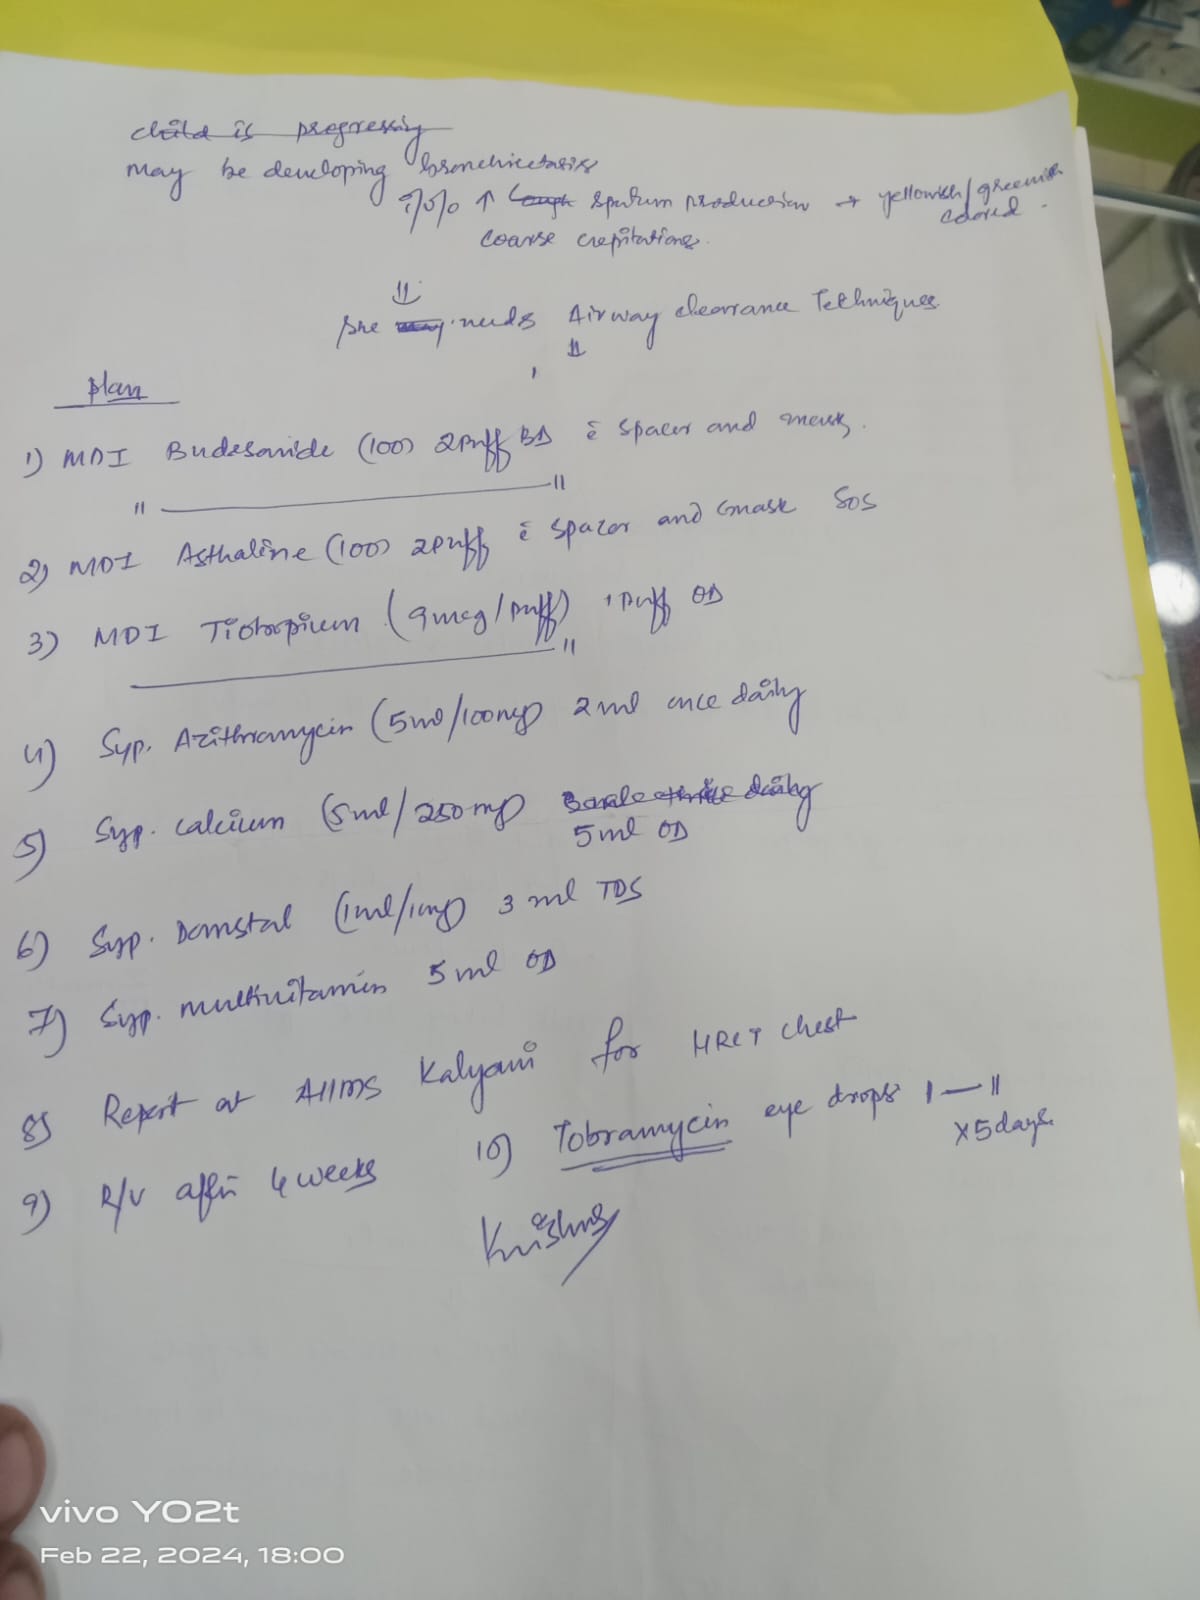 child is progressing
may be developing bronchicetasis
i/v/o ↑ Cough sputum production → yellowish/greenish colored.
coarse crepitations.
⇓
she may needs Airway clearance Techniques
⇓
plan
1) MDI Budesonide (100) 2puff BD c̄ spacer and mask.
" ———— "
2) MDI Asthaline (100) 2puff c̄ spacer and mask SOS
3) MDI Tiotropium (9mcg/puff) 1 puff OD
———— "
4) Syp. Azithromycin (5ml/100mg) 2ml once daily
5) Syp. calcium (5ml/250mg) daily
5ml OD
6) Syp. Domstal (1ml/1mg) 3 ml TDS
7) Syp. multivitamin 5 ml OD
8) Report at AIIMS Kalyani for HRCT chest
9) R/V after 4 weeks
10) Tobramycin eye drops 1 — 11
x5days
Krishna
vivo Y02t
Feb 22, 2024, 18:00